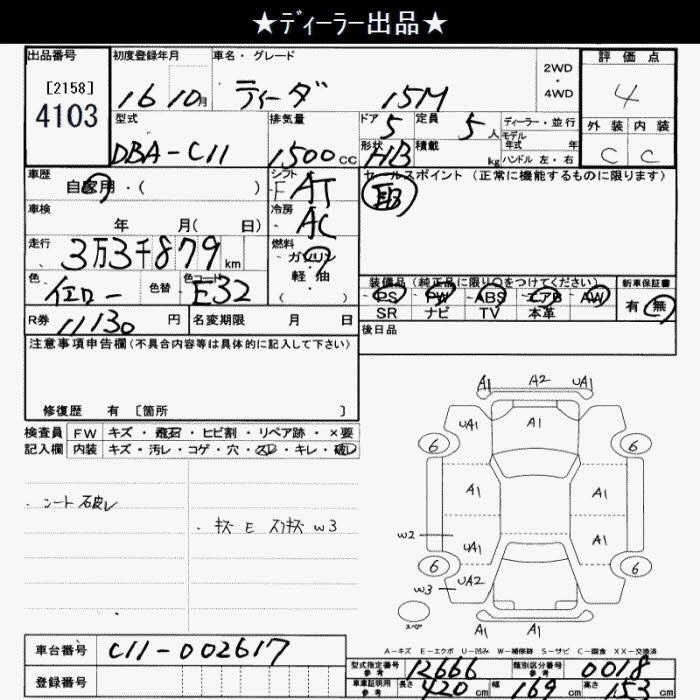 ★ディーラー出品★
出品番号 初度登録年月 車名・グレード 評価点
[2158]
4103
16 10月 ティーダ 15M 2WD・4WD 4
型式 排気量 ドア 定員 ディーラー・並行 外装 内装
DBA-C11 1,500cc 5 5人 モデル年式 年 C C
形状 積載 ハンドル 左・右
H/B kg
車歴 シフト セールスポイント(正常に機能するものに限ります)
自家用・( ) F AT
車検 冷房
年 月( 日) AC
走行 燃料
3万3千879km ガソリン
軽・油
( )
色 色替 色コード 装備品(純正品に限り○をつけてください) 新車保証書
イエロー E32 PS PW ABS エアB AW 有 無
SR ナビ TV 本革
R券 11130円 名変期限 月 日 後日品
注意事項申告欄(不具合内容等は具体的に記入して下さい)
修復歴 有 〔箇所 〕
検査員 FW キズ・飛石・ヒビ割・リペア跡・×要
記入欄 内装 キズ・汚レ・コゲ・穴・スレ・キレ・破レ
・シート破レ
・キズ E スリキズ W3
A1 A2 UA1
UA1 A1
6 6
A1 A1
W2 UA1 A1
6 6
W3 UA2
スペア
A1 A1
A-キズ E-エクボ U-凹み W-補修跡 S-サビ C-腐食 XX-交換済
車台番号 C11-002617
型式指定番号 参考 12666 類別区分番号 参考 0018
登録番号
車庫証明用 参考 長さ 420cm 幅 169cm 高さ 153cm